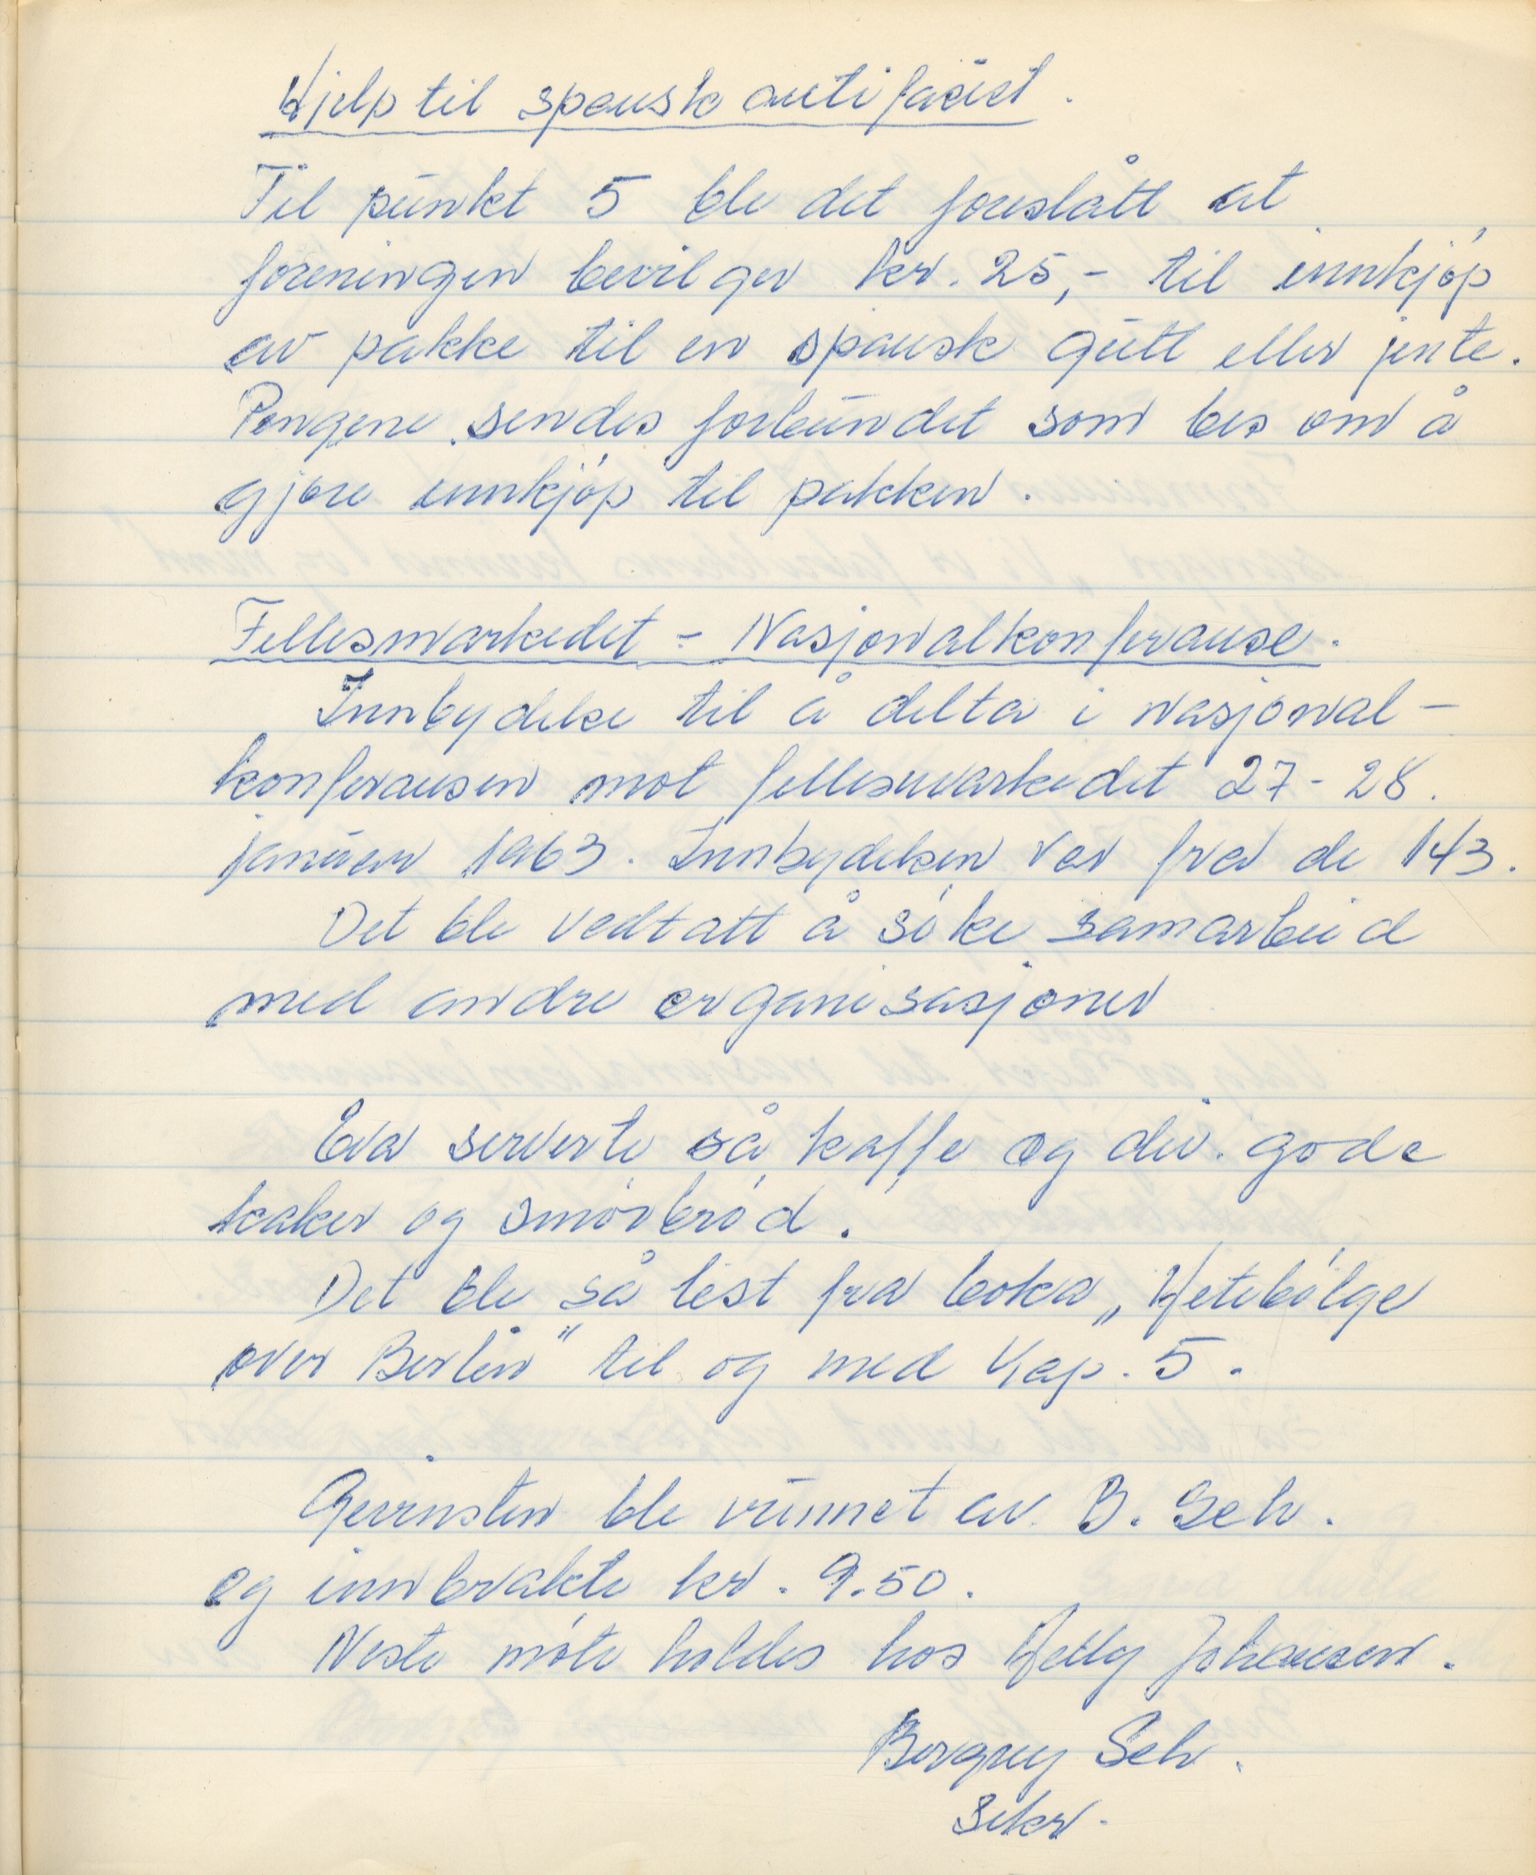 Hjelp til spansk antifacist.
Til punkt 5 ble det foreslått at
foreningen bevilger kr. 25,- til innkjøp
av pakke til en spansk gutt eller jente.
Pengene sendes forbundet som bes om å
gjøre innkjøp til pakken.
Fellesmarkedet - Nasjonalkonferanse.
Innbydelse til å delta i nasjonal-
konferansen mot fellesmarkedet 27-28.
januar 1963. Innbydelsen var fra de 143.
Det ble vedtatt å søke samarbeid
med andre organisasjoner
Eva serverte så kaffe og div. gode
kaker og smørbrød.
Det ble så lest fra boka „Hetebølge
over Berlin" til og med Kap. 5.
Gevinsten ble vunnet av B. Sch.
og innbrakte kr. 9.50.
Neste møte holdes hos Helly Johansen.
Borgny Sch.
Sekr.